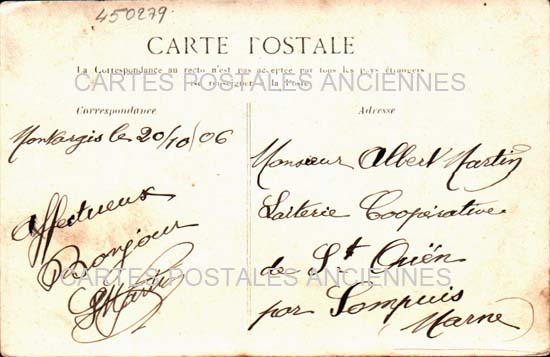 450279
CARTE POSTALE
La Correspondance au recto n'est pas acceptée par tous les pays étrangers
se renseigner à la Poste
CARTES POSTALES ANCIENNES
Correspondance
Adresse
Montargis le 20/10/06
Affectueux
Bonjour
Martin
Monsieur Albert Martin
Laiterie Coopérative
de St Ouën
par Sompuis
Marne
CARTES POSTALES ANCIENNES